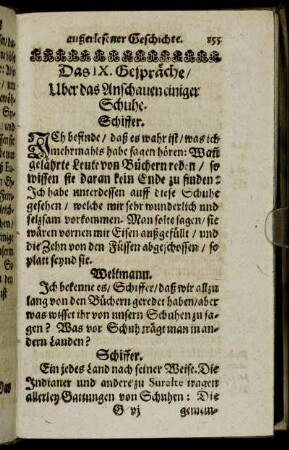 außerlesener Geschichte. 255
Das IX. Gespräche/
Uber das Anschauen einiger
Schuhe.
Schiffer.
ICh befinde/ daß es wahr ist/ was ich
mehrmahls habe sagen hören: Wañ
gelährte Leute von Büchern reden/ so
wissen sie daran kein Ende zu finden:
Ich habe unterdessen auff diese Schuhe
gesehen/ welche mir sehr wunderlich und
selzsam vorkommen. Man solte sagen/ sie
wären vornen mit Eisen außgefüllt/ und
die Zehn von den Füssen abgeschossen/ so
platt seynd sie.
Weltmann.
Ich bekenne es/ Schiffer/ daß wir allzu
lang von den Büchern geredet haben/ aber
was wisset ihr von unsern Schuhen zu sa-
gen? Was vor Schuh trägt man in an-
dern Landen?
Schiffer.
Ein jedes Land nach seiner Weise. Die
Indianer und andere zu Suratte tragen
allerley Gattungen von Schuhen: Die
G vj gemein-